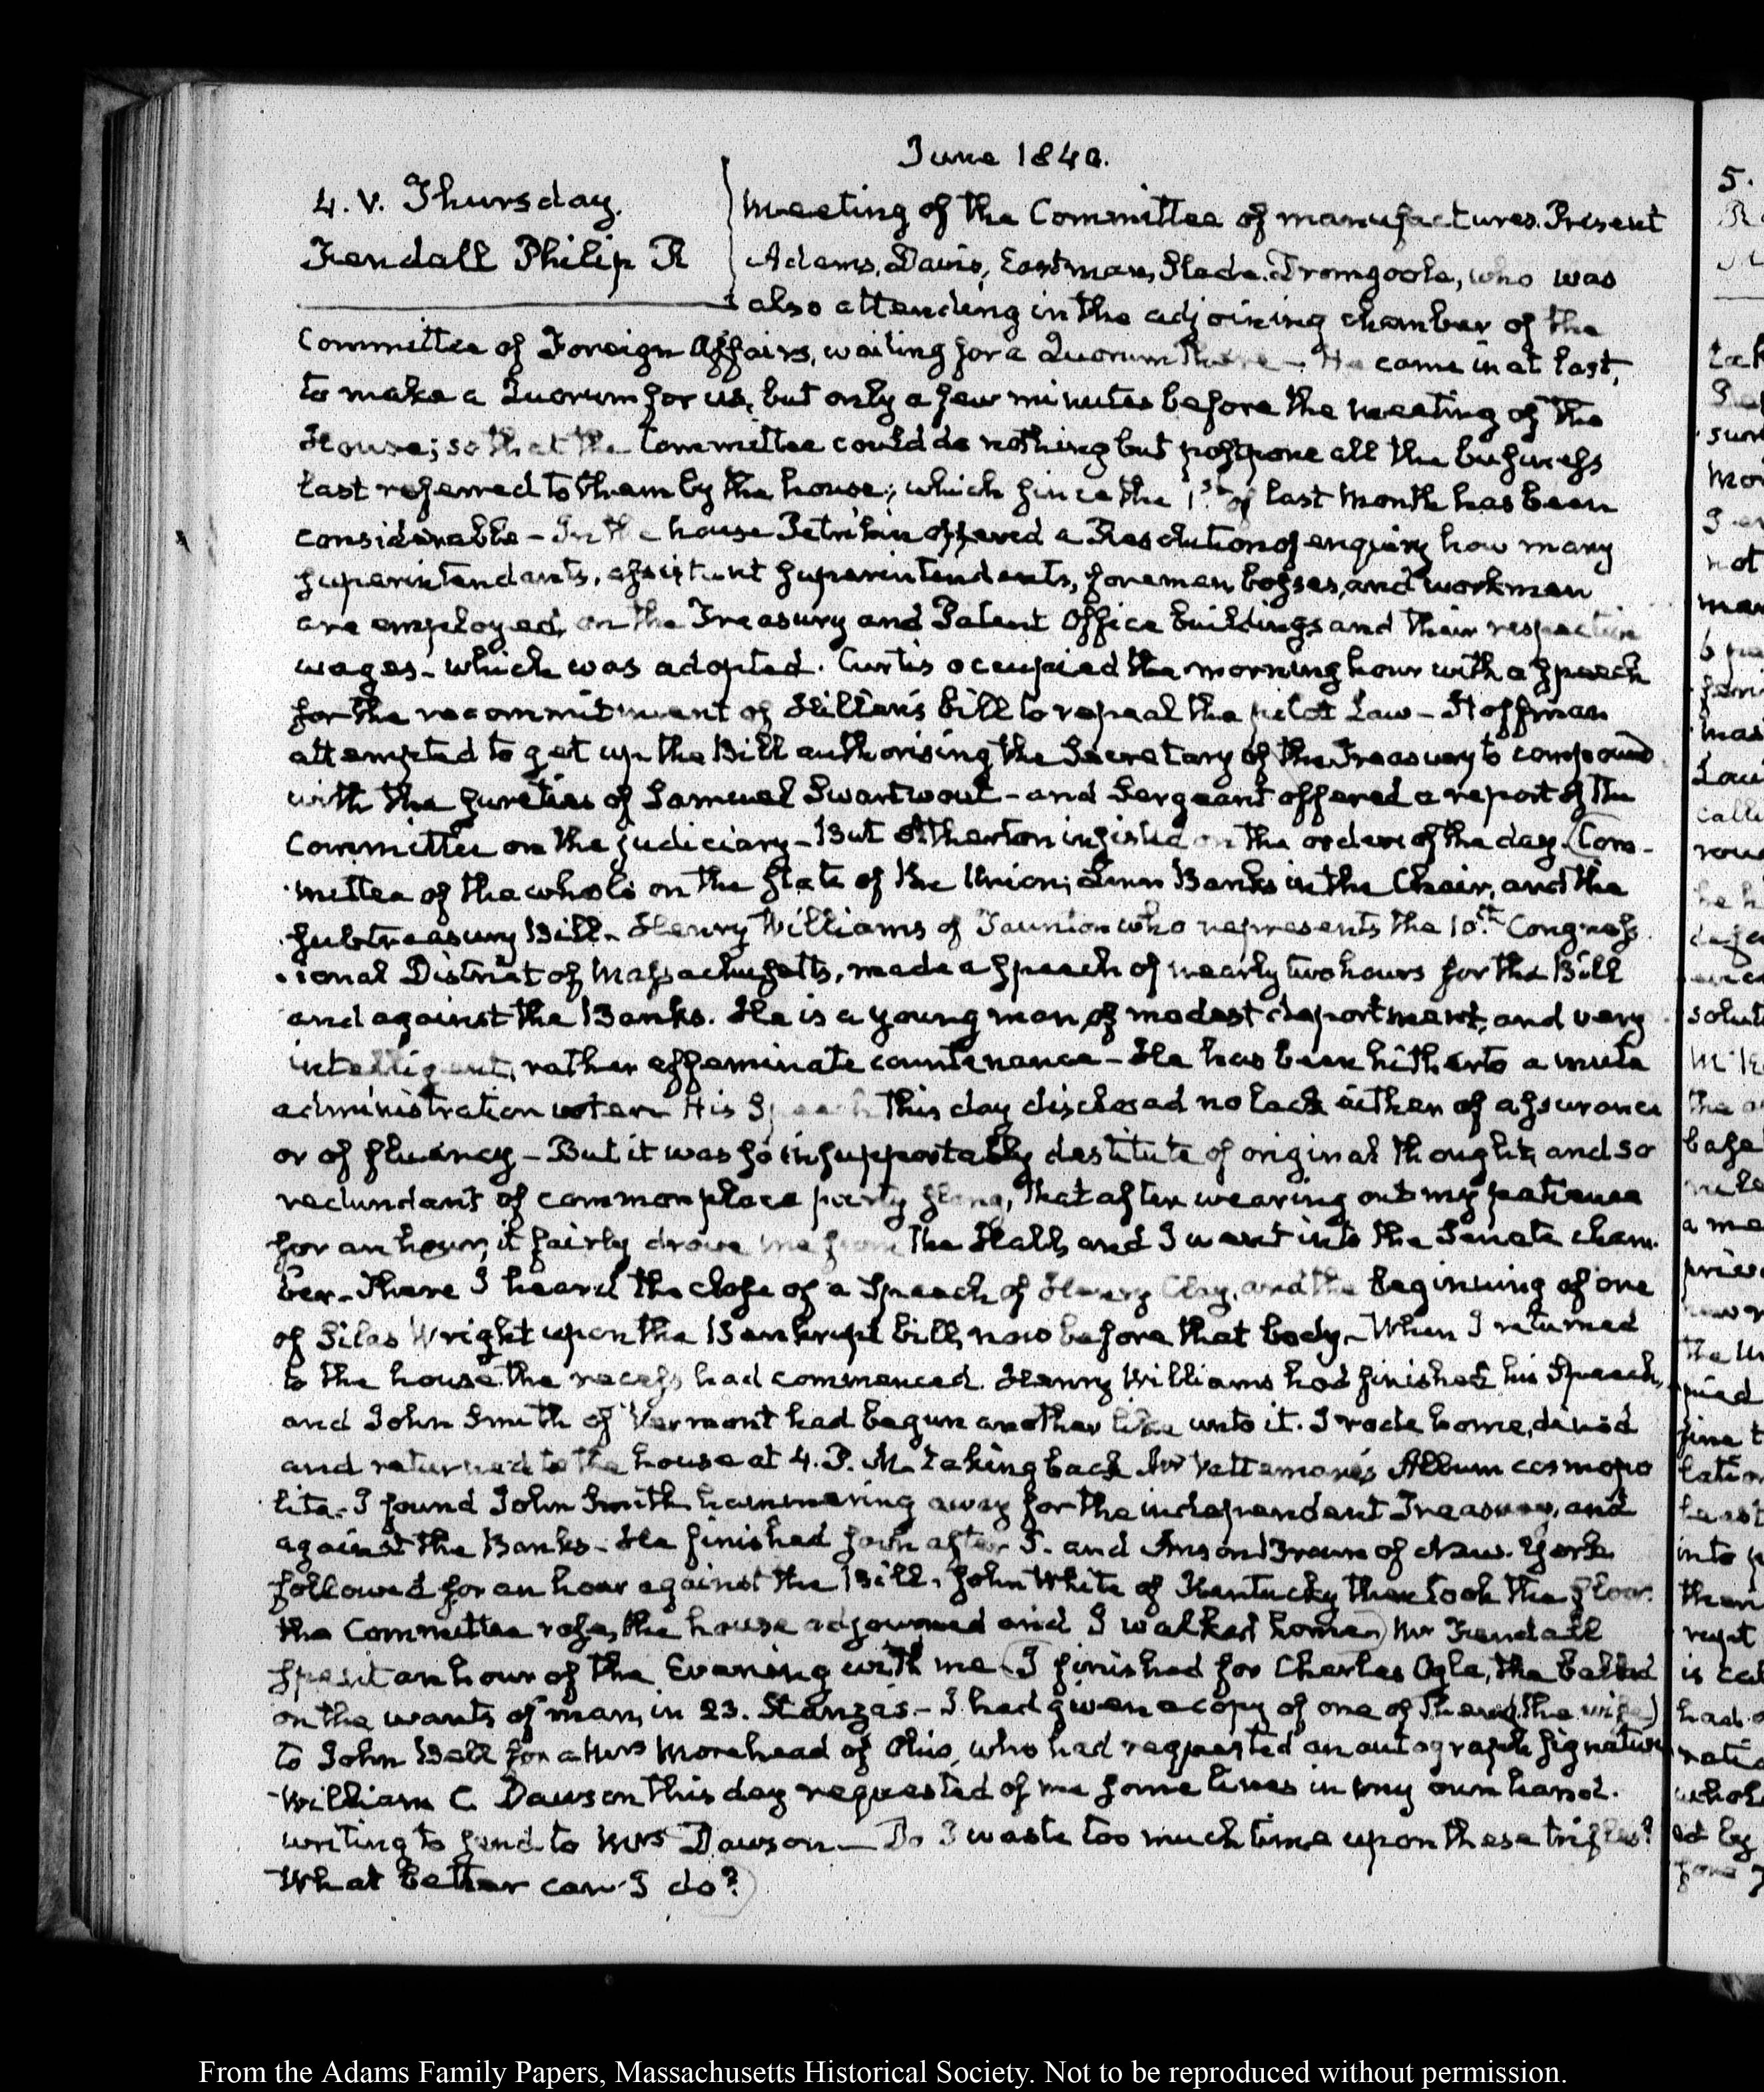 June 1840.
4. V. Thursday.
Fendall Philip R
Meeting of the Committee of manufactures. Present
Adams, Davis, Eastman, Slade. Dromgoole, who was
also attending in the adjoining chamber of the
Committee of Foreign Affairs, waiting for a Quorum there — He came in at last,
to make a Quorum for us, but only a few minutes before the meeting of the
House; so that the Committee could do nothing but postpone all the business
last referred to them by the house; which since the 1st of last Month has been
considerable — In the house Petrikin offered a Resolution of enquiry how many
superintendants, assistant superintendents, foremen, bosses, and workmen
are employed, on the Treasury and Patent Office buildings and their respective
wages — which was adopted. Curtis occupied the morning hour with a speech
for the recommitment of Hillen's bill to repeal the pilot Law — Hoffman
attempted to get up the Bill authorising the Secretary of the Treasury to compound
with the sureties of Samuel Swartwout — and Sergeant offered a report of the
Committee on the judiciary — But Atherton insisted on the orders of the day. (Com-
mittee of the whole on the state of the Union; Linn Banks in the Chair, and the
subtreasury Bill — Henry Williams of Taunton who represents the 10th Congress
ional District of Massachusetts, made a speech of nearly two hours for the Bill
and against the Banks. He is a young man of modest deportment, and very
intelligent, rather effeminate countenance — He has been hitherto a mute
administration voter. His Speech this day disclosed no lack either of assurance
or of fluency — But it was so insupportably destitute of original thought, and so
redundant of common place party slang, that after wearing out my patience
for an hour, it fairly drove me from the Hall, and I went into the Senate cham-
ber — There I heard the close of a Speech of Henry Clay, and the beginning of one
of Silas Wright upon the Bankrupt bill, now before that body — When I returned
to the house the recess had commenced. Henry Williams had finished his Speech,
and John Smith of Vermont had begun another like unto it. I rode home, dined
and returned to the house at 4. P. M. taking back Mr Vattemare's Album cosmopo
lite. I found John Smith hammering away for the independent Treasury, and
against the Banks — He finished soon after 5. and Anson Brown of New-York
followed for an hour against the Bill, John White of Kentucky then took the floor
the Committee rose, the house adjourned and I walked home) Mr Fendall
spent an hour of the Evening with me (I finished for Charles Ogle, the ballad
on the wants of man, in 23. Stanzas — I had given a copy of one of them (the wife)
to John Bell for a Mrs Morehead of Ohio, who had requested an autograph signature
William C. Dawson this day requested of me some lines in my own hand-
writing to send to Mrs Dawson — Do I waste too much time upon these trifles?
What better can I do?)
5.
From the Adams Family Papers, Massachusetts Historical Society. Not to be reproduced without permission.